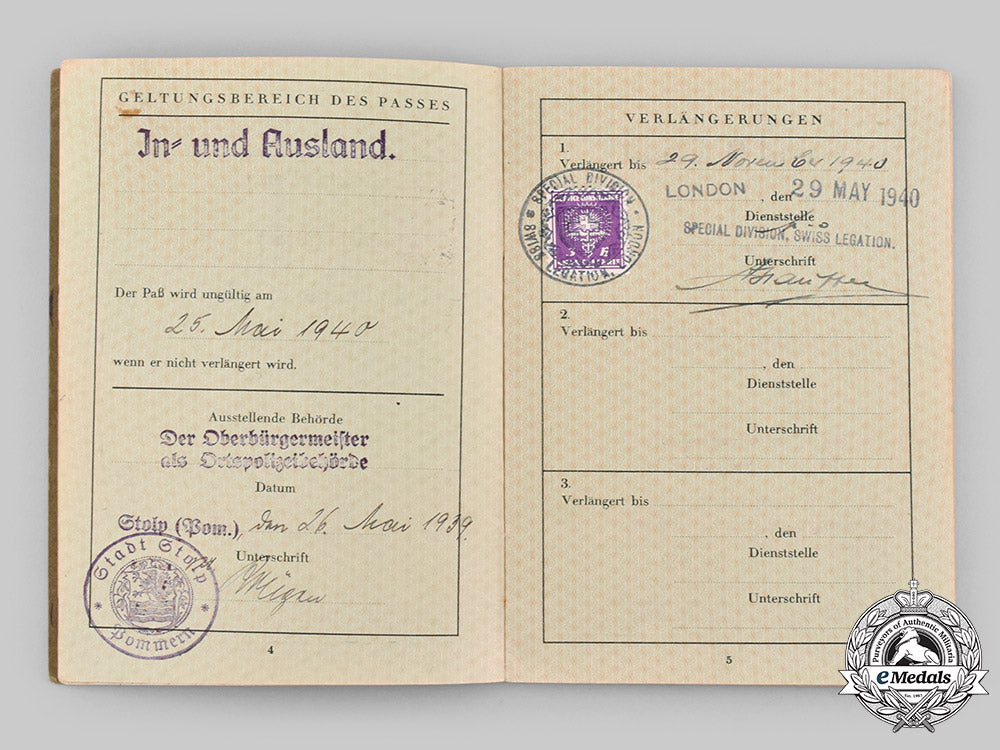 GELTUNGSBEREICH DES PASSES
In- und Ausland.
Der Paß wird ungültig am
25. Mai 1940
wenn er nicht verlängert wird.
Ausstellende Behörde
Der Oberbürgermeister
als Ortspolizeibehörde
Datum
Stolp (Pom.), den 26. Mai 1939.
Unterschrift
Stadt Stolp
Pommern
4
VERLÄNGERUNGEN
1.
Verlängert bis 29. November 1940
LONDON, den 29 MAY 1940
Dienststelle
SPECIAL DIVISION, SWISS LEGATION.
Unterschrift
SPECIAL DIVISION
SWISS LEGATION, LONDON
2.
Verlängert bis
, den
Dienststelle
Unterschrift
3.
Verlängert bis
, den
Dienststelle
Unterschrift
5
Purveyors of Authentic Militaria
eMedals